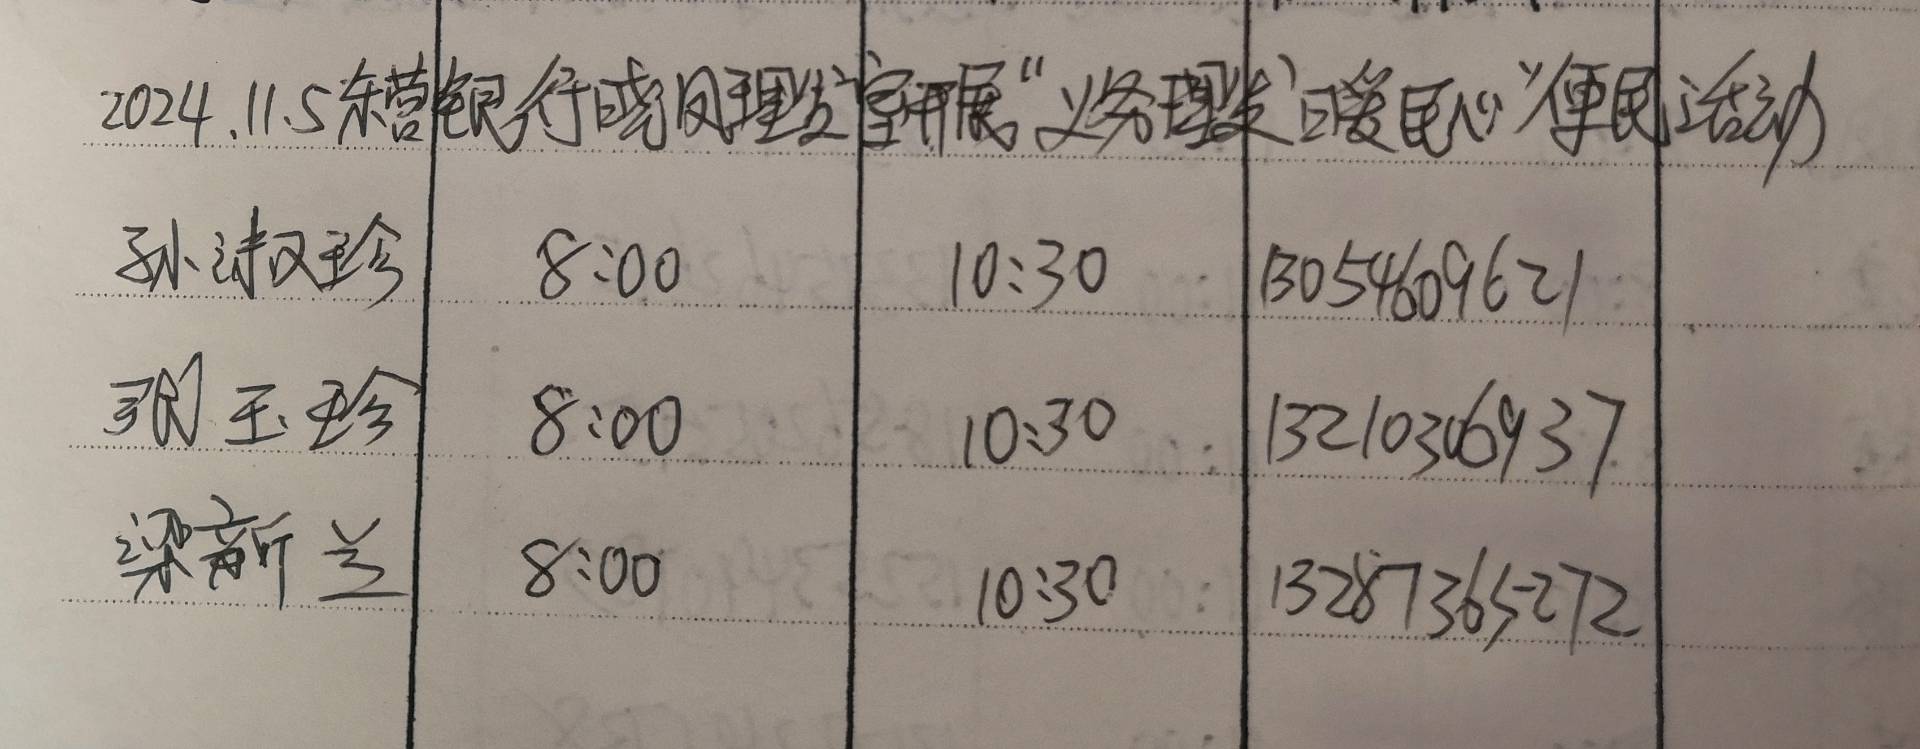 2024.11.5东营银行晓风理发室开展“义务理发暖民心”便民活动
孙淑珍 8:00 10:30 13054609621
玉珍 8:00 10:30 13210306937
梁新兰 8:00 10:30 13287365272